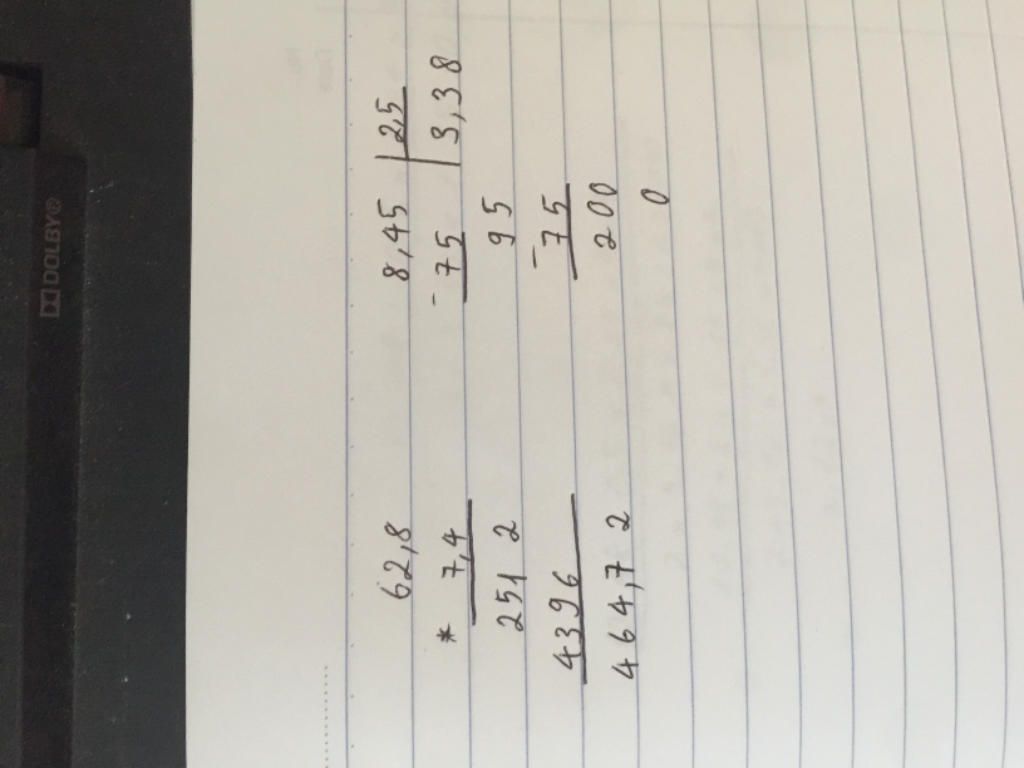 DOLBY®
62,8
* 7,4
251 2
4396
464,7 2
8,45 | 2,5
- 75 | 3,38
95
- 75
200
0